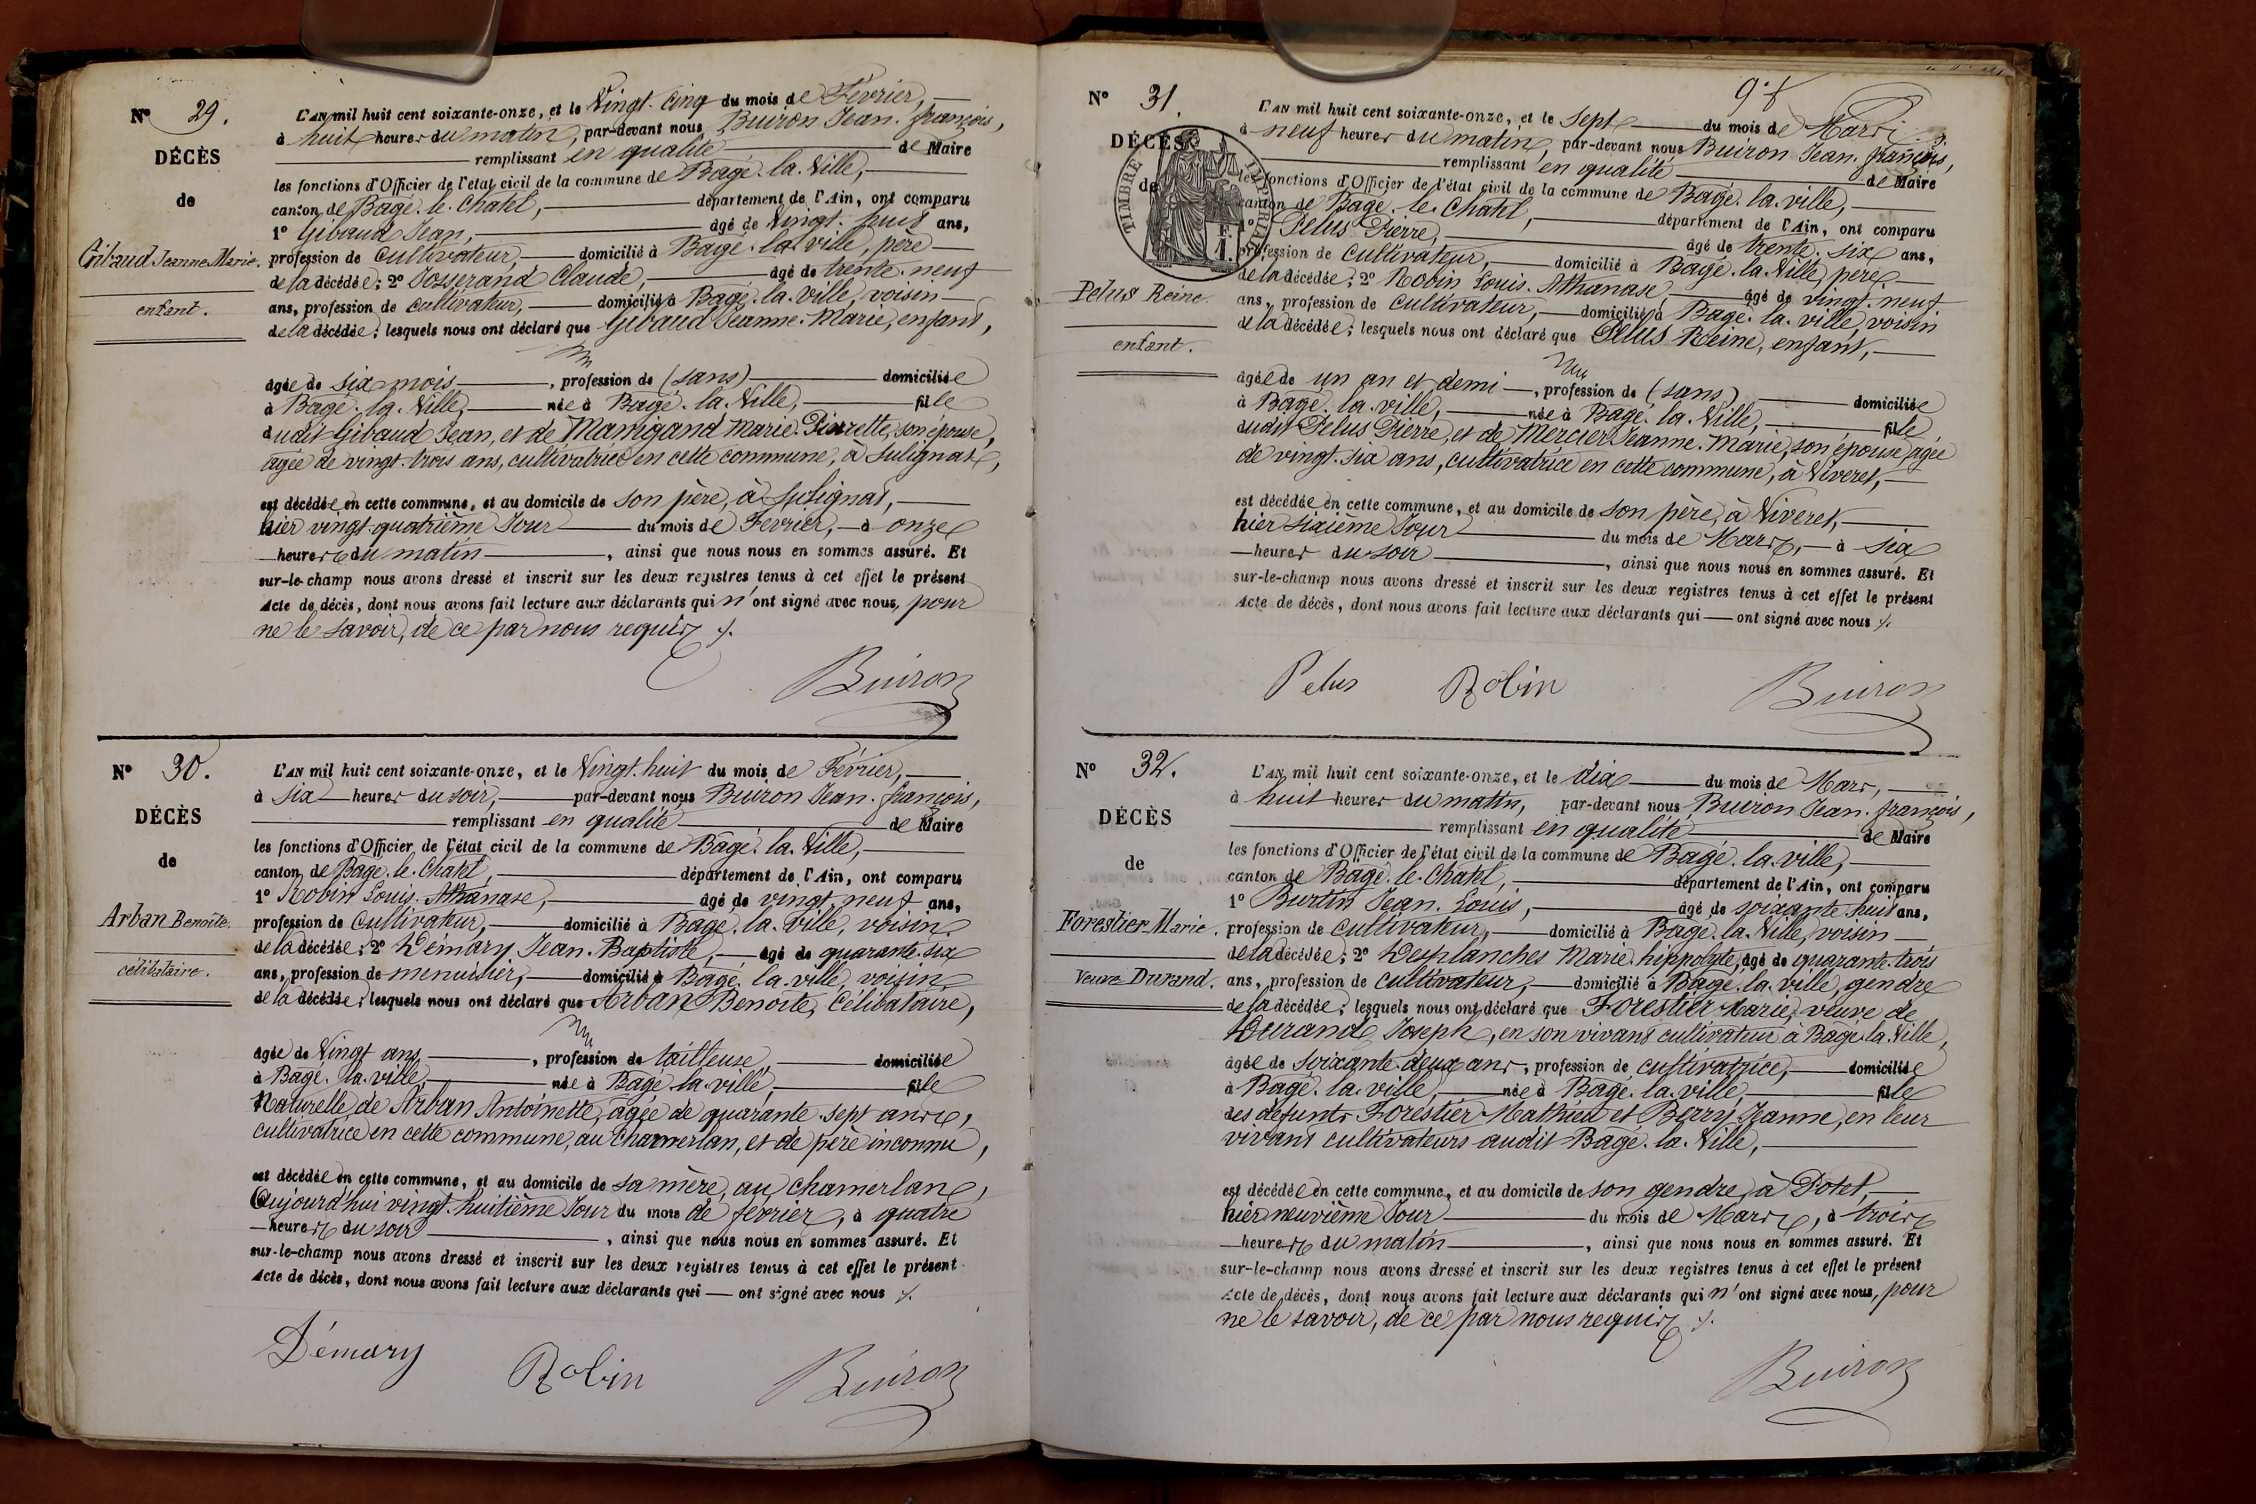 N° 29.
DÉCÈS
de
Gibaud Jeanne Marie.
enfant.
L'AN mil huit cent soixante-onze, et le Vingt-Cinq du mois de Février,
à huit heures du matin, par-devant nous Buiron Jean-françois,
remplissant en qualité de Maire
les fonctions d'Officier de l'état civil de la commune de Bagé-la-Ville,
canton de Bagé-le-Chatel, département de l'Ain, ont comparu
1° Gibaud Jean, âgé de Vingt-huit ans,
profession de Cultivateur, domicilié à Bagé-la-Ville, père
de la décédée; 2° Josserand Claude, âgé de trente-neuf
ans, profession de cultivateur, domicilié à Bagé-la-Ville, voisin
de la décédée; lesquels nous ont déclaré que Gibaud Jeanne-Marie, enfant,
âgée de six mois, profession de (sans) domiciliée
à Bagé-la-Ville, née à Bagé-la-Ville, fille
dudit Gibaud Jean, et de Manigand Marie-Pierrette, son épouse,
âgée de vingt-trois ans, cultivatrice en cette commune, à Sulignat,
est décédée en cette commune, et au domicile de son père, à Sulignat,
hier vingt-quatrième Jour du mois de Février, à onze
heures du matin, ainsi que nous nous en sommes assuré. Et
sur-le-champ nous avons dressé et inscrit sur les deux registres tenus à cet effet le présent
Acte de décès, dont nous avons fait lecture aux déclarants qui n'ont signé avec nous, pour
ne le savoir, de ce par nous requis ./.
Buiron
N° 30.
DÉCÈS
de
Arban Benoîte.
célibataire.
L'AN mil huit cent soixante-onze, et le Vingt-huit du mois de Février,
à six heures du soir, par-devant nous Buiron Jean-françois,
remplissant en qualité de Maire
les fonctions d'Officier de l'état civil de la commune de Bagé-la-Ville,
canton de Bagé-le-Chatel, département de l'Ain, ont comparu
1° Robin Louis-Athanase, âgé de vingt-neuf ans,
profession de Cultivateur, domicilié à Bagé-la-Ville, voisin
de la décédée; 2° Démary Jean-Baptiste, âgé de quarante-six
ans, profession de menuisier, domicilié à Bagé-la-ville, voisin
de la décédée; lesquels nous ont déclaré que Arban Benoîte, Célibataire,
âgée de Vingt ans, profession de tailleuse, domiciliée
à Bagé-la-ville, née à Bagé-la-ville, fille
Naturelle de Arban Antoinette, âgée de quarante-sept ans,
cultivatrice en cette commune, au Chamerlan, et de père inconnu,
est décédée en cette commune, et au domicile de sa mère, au Chamerlan,
Aujourd'hui vingt-huitième Jour du mois de février, à quatre
heures du soir, ainsi que nous nous en sommes assuré. Et
sur-le-champ nous avons dressé et inscrit sur les deux registres tenus à cet effet le présent
Acte de décès, dont nous avons fait lecture aux déclarants qui ont signé avec nous ./.
Démary Robin Buiron
9.f
N° 31.
DÉCÈS
de
TIMBRE IMPERIAL
1 F.
Pelus Reine.
enfant.
L'AN mil huit cent soixante-onze, et le sept du mois de Mars
à neuf heures du matin, par-devant nous Buiron Jean-françois,
remplissant en qualité de Maire
les fonctions d'Officier de l'état civil de la commune de Bagé-la-ville,
canton de Bagé-le-Chatel, département de l'Ain, ont comparu
1° Pelus Pierre, âgé de trente-six ans,
profession de Cultivateur, domicilié à Bagé-la-Ville, père
de la décédée; 2° Robin Louis-Athanase, âgé de vingt-neuf
ans, profession de Cultivateur, domicilié à Bagé-la-ville, voisin
de la décédée; lesquels nous ont déclaré que Pelus Reine, enfant,
âgée de un an et demi, profession de (sans) domiciliée
à Bagé-la-ville, née à Bagé-la-Ville, fille
dudit Pelus Pierre, et de Mercier Jeanne-Marie, son épouse, âgée
de vingt-six ans, cultivatrice en cette commune, à Viveret,
est décédée en cette commune, et au domicile de son père, à Viveret,
hier sixième Jour du mois de Mars, à six
heures du soir, ainsi que nous nous en sommes assuré. Et
sur-le-champ nous avons dressé et inscrit sur les deux registres tenus à cet effet le présent
Acte de décès, dont nous avons fait lecture aux déclarants qui ont signé avec nous ./.
Pelus Robin Buiron
N° 32.
DÉCÈS
de
Forestier Marie.
Veuve Durand.
L'AN mil huit cent soixante-onze, et le dix du mois de Mars,
à huit heures du matin, par-devant nous Buiron Jean-françois,
remplissant en qualité de Maire
les fonctions d'Officier de l'état civil de la commune de Bagé-la-ville,
canton de Bagé-le-Chatel, département de l'Ain, ont comparu
1° Burtin Jean-Louis, âgé de soixante-huit ans,
profession de Cultivateur, domicilié à Bagé-la-Ville, voisin
de la décédée; 2° Desplanches Marie-hippolyte, âgé de quarante-trois
ans, profession de cultivateur, domicilié à Bagé-la-ville, gendre
de la décédée; lesquels nous ont déclaré que Forestier Marie, veuve de
Durand Joseph, en son vivant cultivateur à Bagé-la-Ville,
âgée de soixante-deux ans, profession de cultivatrice, domiciliée
à Bagé-la-ville, née à Bagé-la-ville, fille
des défunts Forestier Mathieu et Berry Jeanne, en leur
vivant cultivateurs audit Bagé-la-Ville,
est décédée en cette commune, et au domicile de son gendre, à Dotet,
hier neuvième Jour du mois de Mars, à trois
heures du matin, ainsi que nous nous en sommes assuré. Et
sur-le-champ nous avons dressé et inscrit sur les deux registres tenus à cet effet le présent
Acte de décès, dont nous avons fait lecture aux déclarants qui n'ont signé avec nous, pour
ne le savoir, de ce par nous requis ./.
Buiron